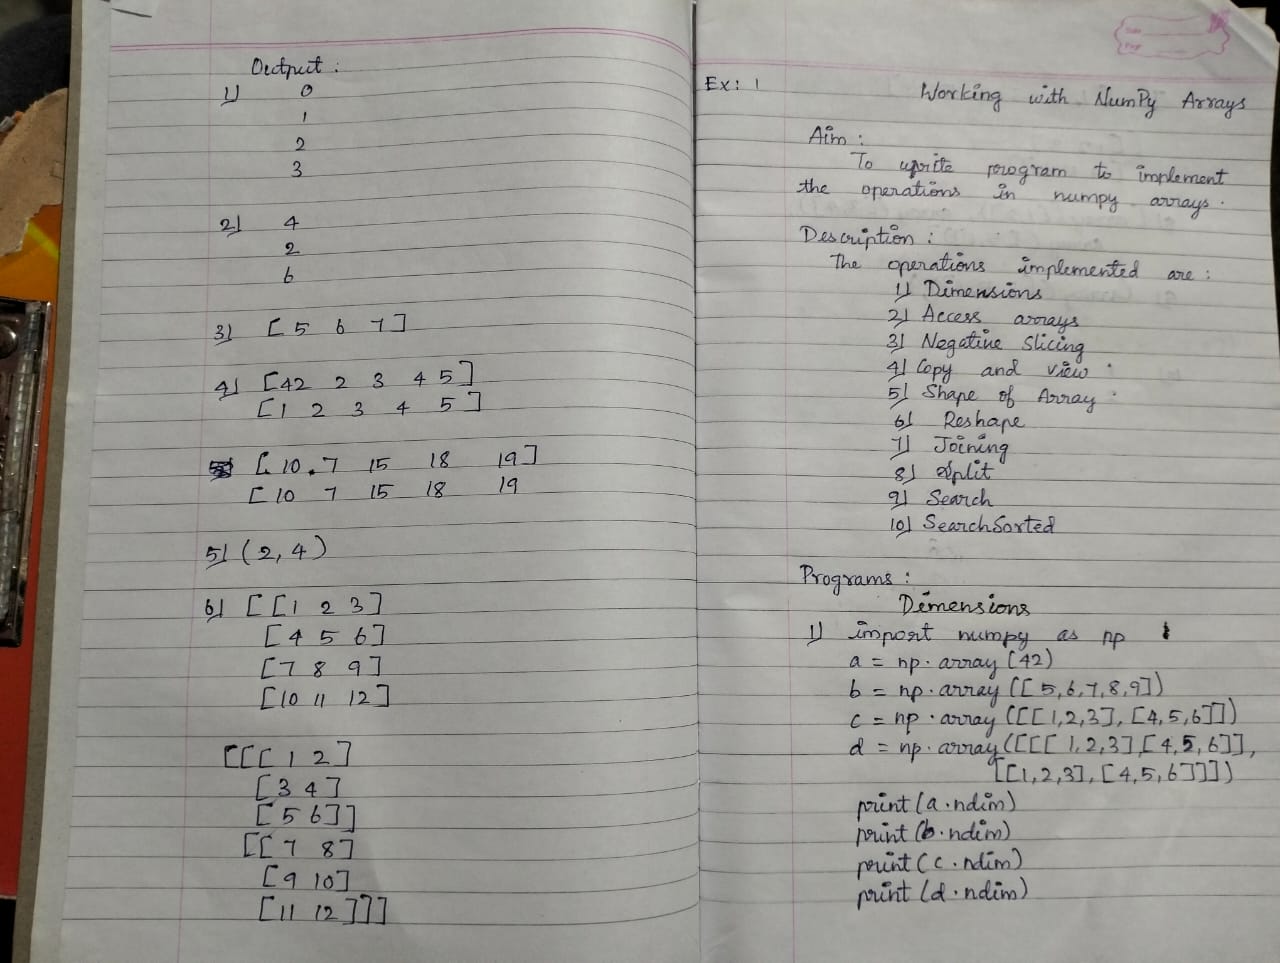 Output :
1) 0
1
2
3
2) 4
2
6
3) [ 5 6 7 ]
4) [42 2 3 4 5 ]
[ 1 2 3 4 5 ]
[ 10 . 7 15 18 19 ]
[ 10 7 15 18 19
5) (2, 4)
6) [ [ 1 2 3 ]
[ 4 5 6 ]
[ 7 8 9 ]
[10 11 12 ]
[ [ [ 1 2 ]
[ 3 4 ]
[ 5 6 ] ]
[ [ 7 8 ]
[ 9 10 ]
[ 11 12 ] ] ]
Date
Page
Ex : 1
Working with NumPy Arrays
Aim :
To write program to implement
the operations in numpy arrays .
Description :
The operations implemented are :
1) Dimensions
2) Access arrays
3) Negative Slicing
4) Copy and view
5) Shape of Array
6) Reshape
7) Joining
8) Split
9) Search
10) SearchSorted
Programs :
Dimensions
1) import numpy as np
a = np . array (42)
b = np . array ([ 5,6,7,8,9])
c = np . array ([[ 1,2,3], [4,5,6]])
d = np . array ([[[ 1,2,3] [4,5,6]],
[[1,2,3], [4,5,6]]])
print (a . ndim)
print (b . ndim)
print (c . ndim)
print (d . ndim)